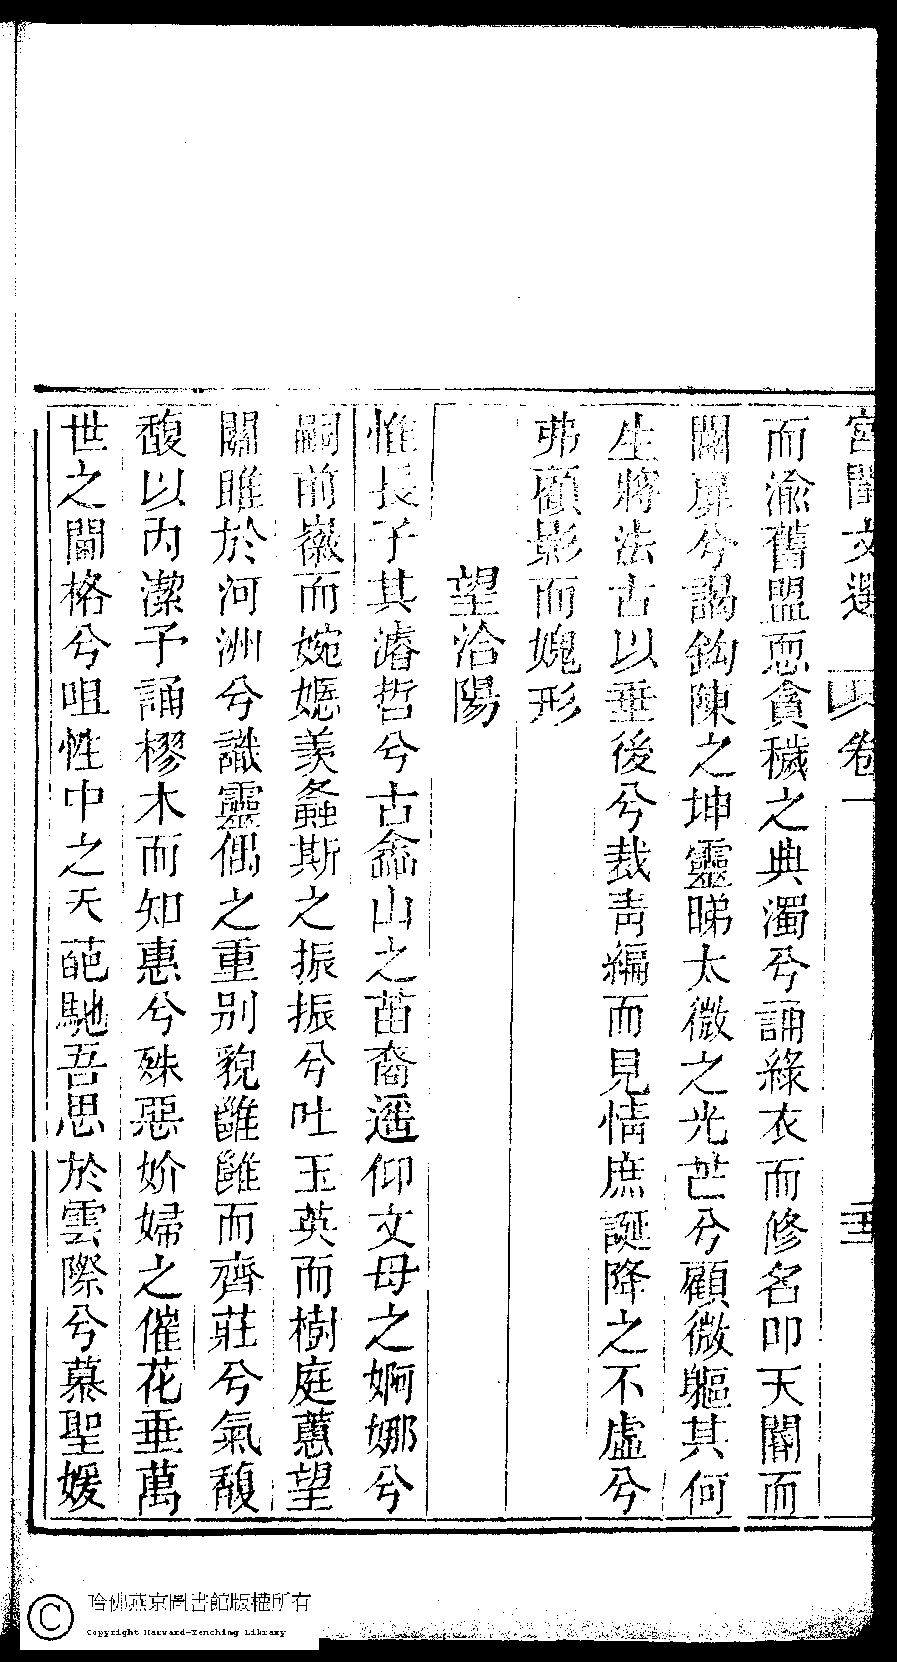 宮閨文選 卷一 五
而渝舊盟恧貪穢之典濁兮誦綠衣而修名叩天閽而
闢扉兮謁鈎陳之坤靈睇太微之光芒兮顧微軀其何
生將法古以垂後兮裁青編而見情庶誕降之不虛兮
弗顧影而媿形
望洽陽
惟長子其濬哲兮古嵞山之苗裔遥仰文母之婀娜兮
嗣前徽而婉嫕羨螽斯之振振兮吐玉英而樹庭蕙望
關雎於河洲兮識靈偶之重別貌雝雝而齊莊兮氣馥
馥以內潔予誦樛木而知惠兮殊惡妎婦之催花垂萬
世之閫格兮咀性中之天葩馳吾思於雲際兮慕聖媛
哈佛燕京圖書館版權所有
Copyright Harvard-Yenching Library